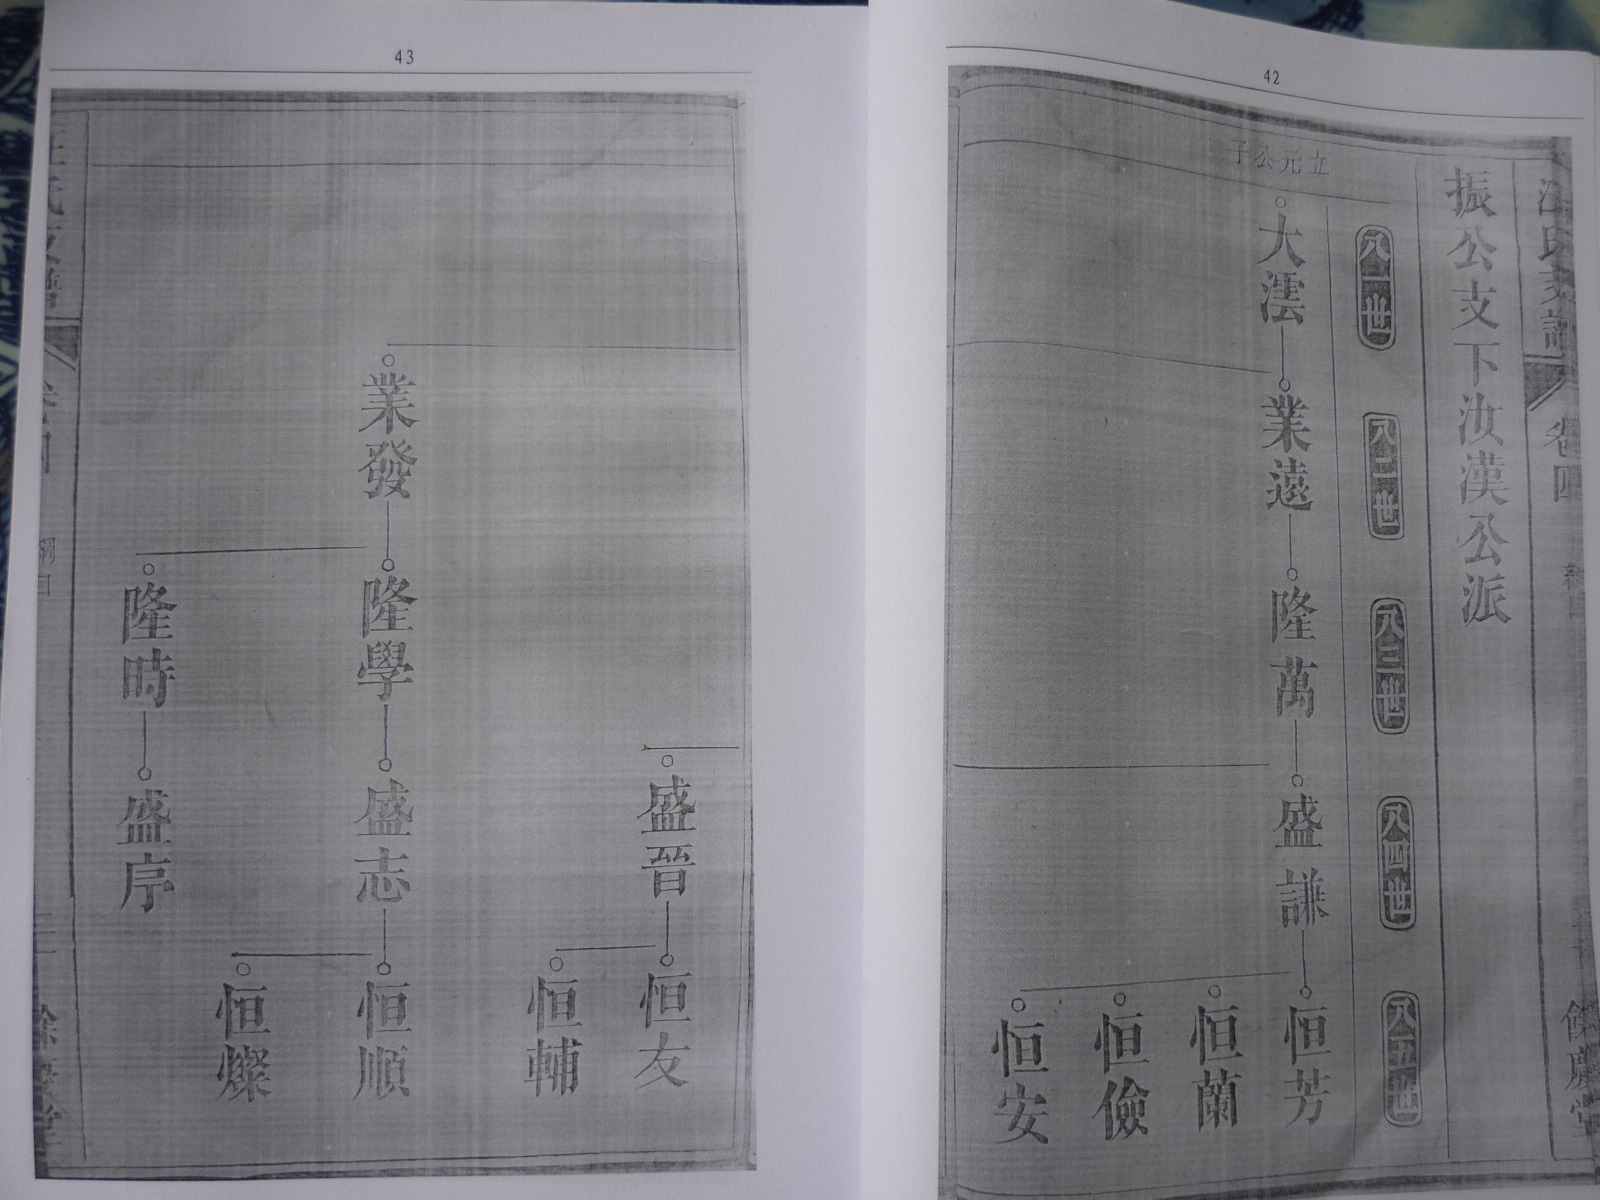 42
汪氏支譜
卷四
餘慶堂
振公支下汝漢公派
八一世
八二世
八三世
八四世
八五世
立元公子
大澐
業遠
隆萬
盛謙
恒芳
恒蘭
恒儉
恒安
43
盛晉
恒友
恒輔
業發
隆學
盛志
恒順
恒燦
隆時
盛序
汪氏支譜
卷四
餘慶堂